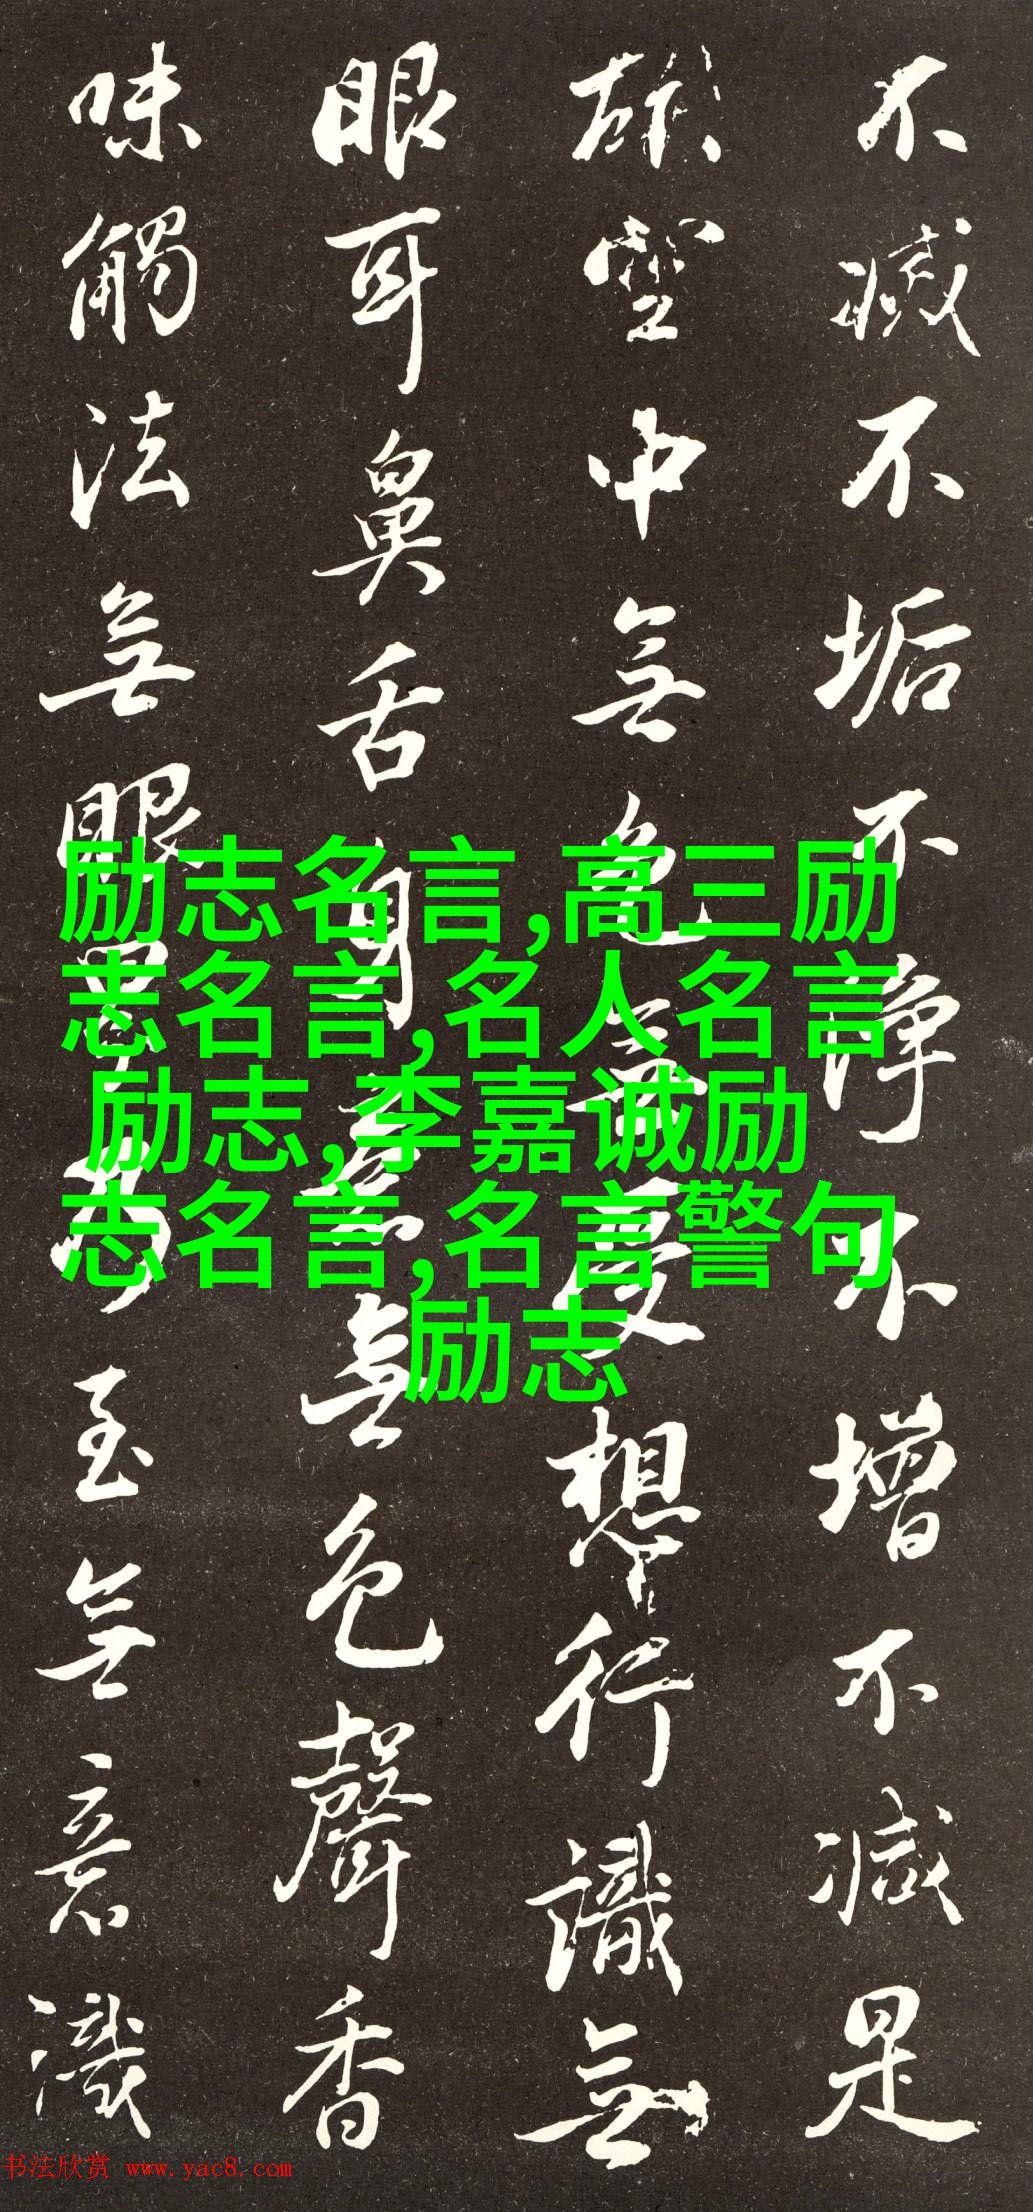 不滅不垢不淨不增不減是
故空中無色無受想行識無
眼耳鼻舌身意無色聲香
味觸法無眼界乃至無意識
励志名言,高三励
志名言,名人名言
励志,李嘉诚励
志名言,名言警句
励志
书法欣赏 www.yac8.com